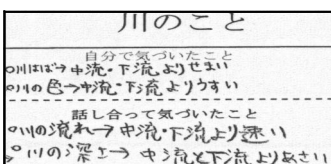 川のこと
自分で気づいたこと
○川はば→中流・下流よりせまい
○川の色→中流・下流よりうすい
話し合って気づいたこと
○川の流れ→中流・下流より速い
○川の深さ→中流と下流よりあさい